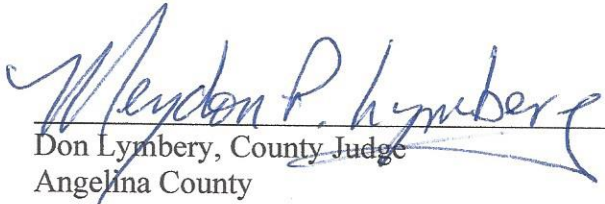 Meydon P. Lymbery
Don Lymbery, County Judge
Angelina County